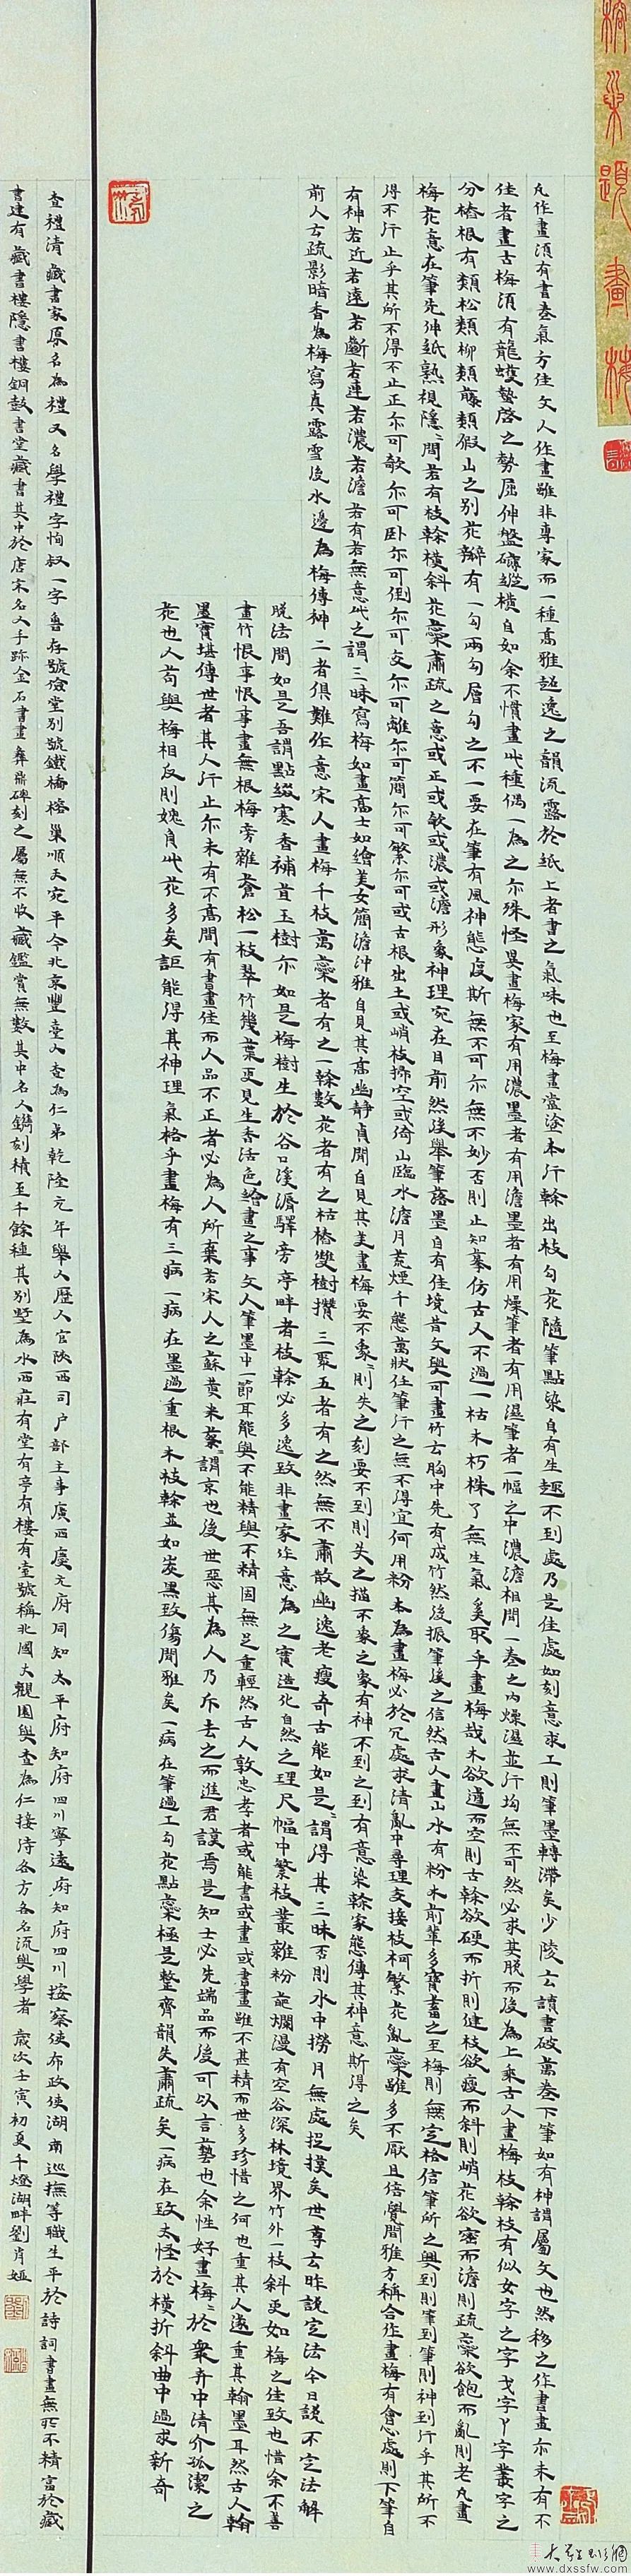 榕巢題畫梅
凡作畫須有書卷氣方佳文人作畫雖非專家而一種高雅超逸之韻流露於紙上者書之氣味也至梅畫當塗本行榦出枝勾花隨筆點染自有生趣不到處乃是佳處如刻意求工則筆墨轉滯矣少陵云讀書破萬卷下筆如有神謂屬文也然移之作書畫亦未有不
佳者畫古梅須有龍蛟蟄啓之勢屈伸盤礴縱橫自如余不慣畫此種偶一為之亦殊怪異畫梅家有用濃墨者有用澹墨者有用燥筆者有用濕筆者一幅之中濃澹相間一卷之內燥濕並行均無不可然必求其脫而後為上乘古人畫梅枝榦枝有似女字之字戈字丫字叢字之
分樁根有類松類柳類藤類假山之別花瓣有一勾兩勾層勾之不一要在筆有風神態度斯無不可亦無不妙否則止知摹仿古人不過一枯木朽株了無生氣奚取乎畫梅哉木欲遒而空則古榦欲硬而折則健枝欲瘦而斜則峭花欲密而澹則疏蘂欲飽而亂則老凡畫
梅花意在筆先伸紙熟視隱隱間若有枝榦橫斜花蘂蕭疏之意或正或欹或濃或澹形象神理宛在目前然後舉筆落墨自有佳境昔文與可畫竹云胸中先有成竹然後振筆從之信然古人畫山水有粉本前輩多寶蓄之至梅則無定格信筆所之興到則筆到筆到則神到行乎其所不
得不行止乎其所不得不止正亦可欹亦可卧亦可倒亦可交亦可離亦可簡亦可繁亦可或古根出土或峭枝掃空或倚山臨水澹月荒煙千態萬狀任筆行之無不得宜何用粉本為畫梅必於冗處求清亂中尋理交接枝柯繁花亂蘂雖多不厭且倍覺閒雅方稱合作畫梅有會心處則下筆自
有神若近若遠若斷若連若濃若澹若有若無意此之謂三昧寫梅如畫高士如繪美女簡澹沖雅自見其高幽靜貞閒自見其美畫梅要不象象則失之刻要不到到則失之描不象之象有神不到之到有意染榦家態傳其神意斯得之矣
前人云疏影暗香為梅寫真露雪後水邊為梅傳神二者俱難作意宋人畫梅千枝萬蘂者有之一榦數花者有之枯樁雙樹攢三聚五者有之然無不蕭散幽逸老瘦奇古能如是謂得其三昧否則水中撈月無處捉摸矣世尊云昨說定法今日說不定法解
脫法間如是吾謂點綴寒香補苴玉樹亦如是梅樹生於谷口溪濱驛旁亭畔者枝榦必多逸致非畫家作意為之實造化自然之理尺幅中繁枝叢雜粉葩爛漫有空谷深林境界竹外一枝斜更如梅之佳致也惜余不善
畫竹恨事恨事畫無根梅旁雜蒼松一枝翠竹幾葉更見生香活色繪畫之事文人筆墨中一節耳能與不能精與不精固無足重輕然古人敦忠孝者或能書或畫或書畫雖不甚精而世多珍惜之何也重其人遂重其翰墨耳然古人翰
墨寶堪傳世者其人行止亦未有不高間有書畫佳而人品不正者必為人所棄若宋人之蘇黃米蔡蔡謂京也後世惡其為人乃斥去之而進君謨焉是知士必先端品而後可以言藝也余性好畫梅梅於衆卉中清介孤潔之
花也人苟與梅相反則媿負此花多矣詎能得其神理氣格乎畫梅有三病一病在墨過重根木枝榦並如炭黑致傷閒雅矣一病在筆過工勾花點蘂極是整齊韻失蕭疏矣一病在致太怪於橫折斜曲中過求新奇
查禮清藏書家原名為禮又名學禮字恂叔一字魯存號儉堂別號鐵橋榕巢順天宛平今北京豐臺人查為仁弟乾隆元年舉人歷人官陝西司戶部主事廣西慶元府同知太平府知府四川寧遠府知府四川按察使布政使湖南巡撫等職生平於詩詞書畫無所不精富於藏
書建有藏書樓隱書樓銅鼓書堂藏書其中於唐宋名人手跡金石書畫彝鼎碑刻之屬無不收藏鑑賞無數其中名人鐫刻積至千餘種其別墅為水西莊有堂有亭有樓有臺號稱北國大觀園與查為仁接待各方各名流與學者 歲次壬寅初夏千燈湖畔劉肖婭
www.dxssfw.com